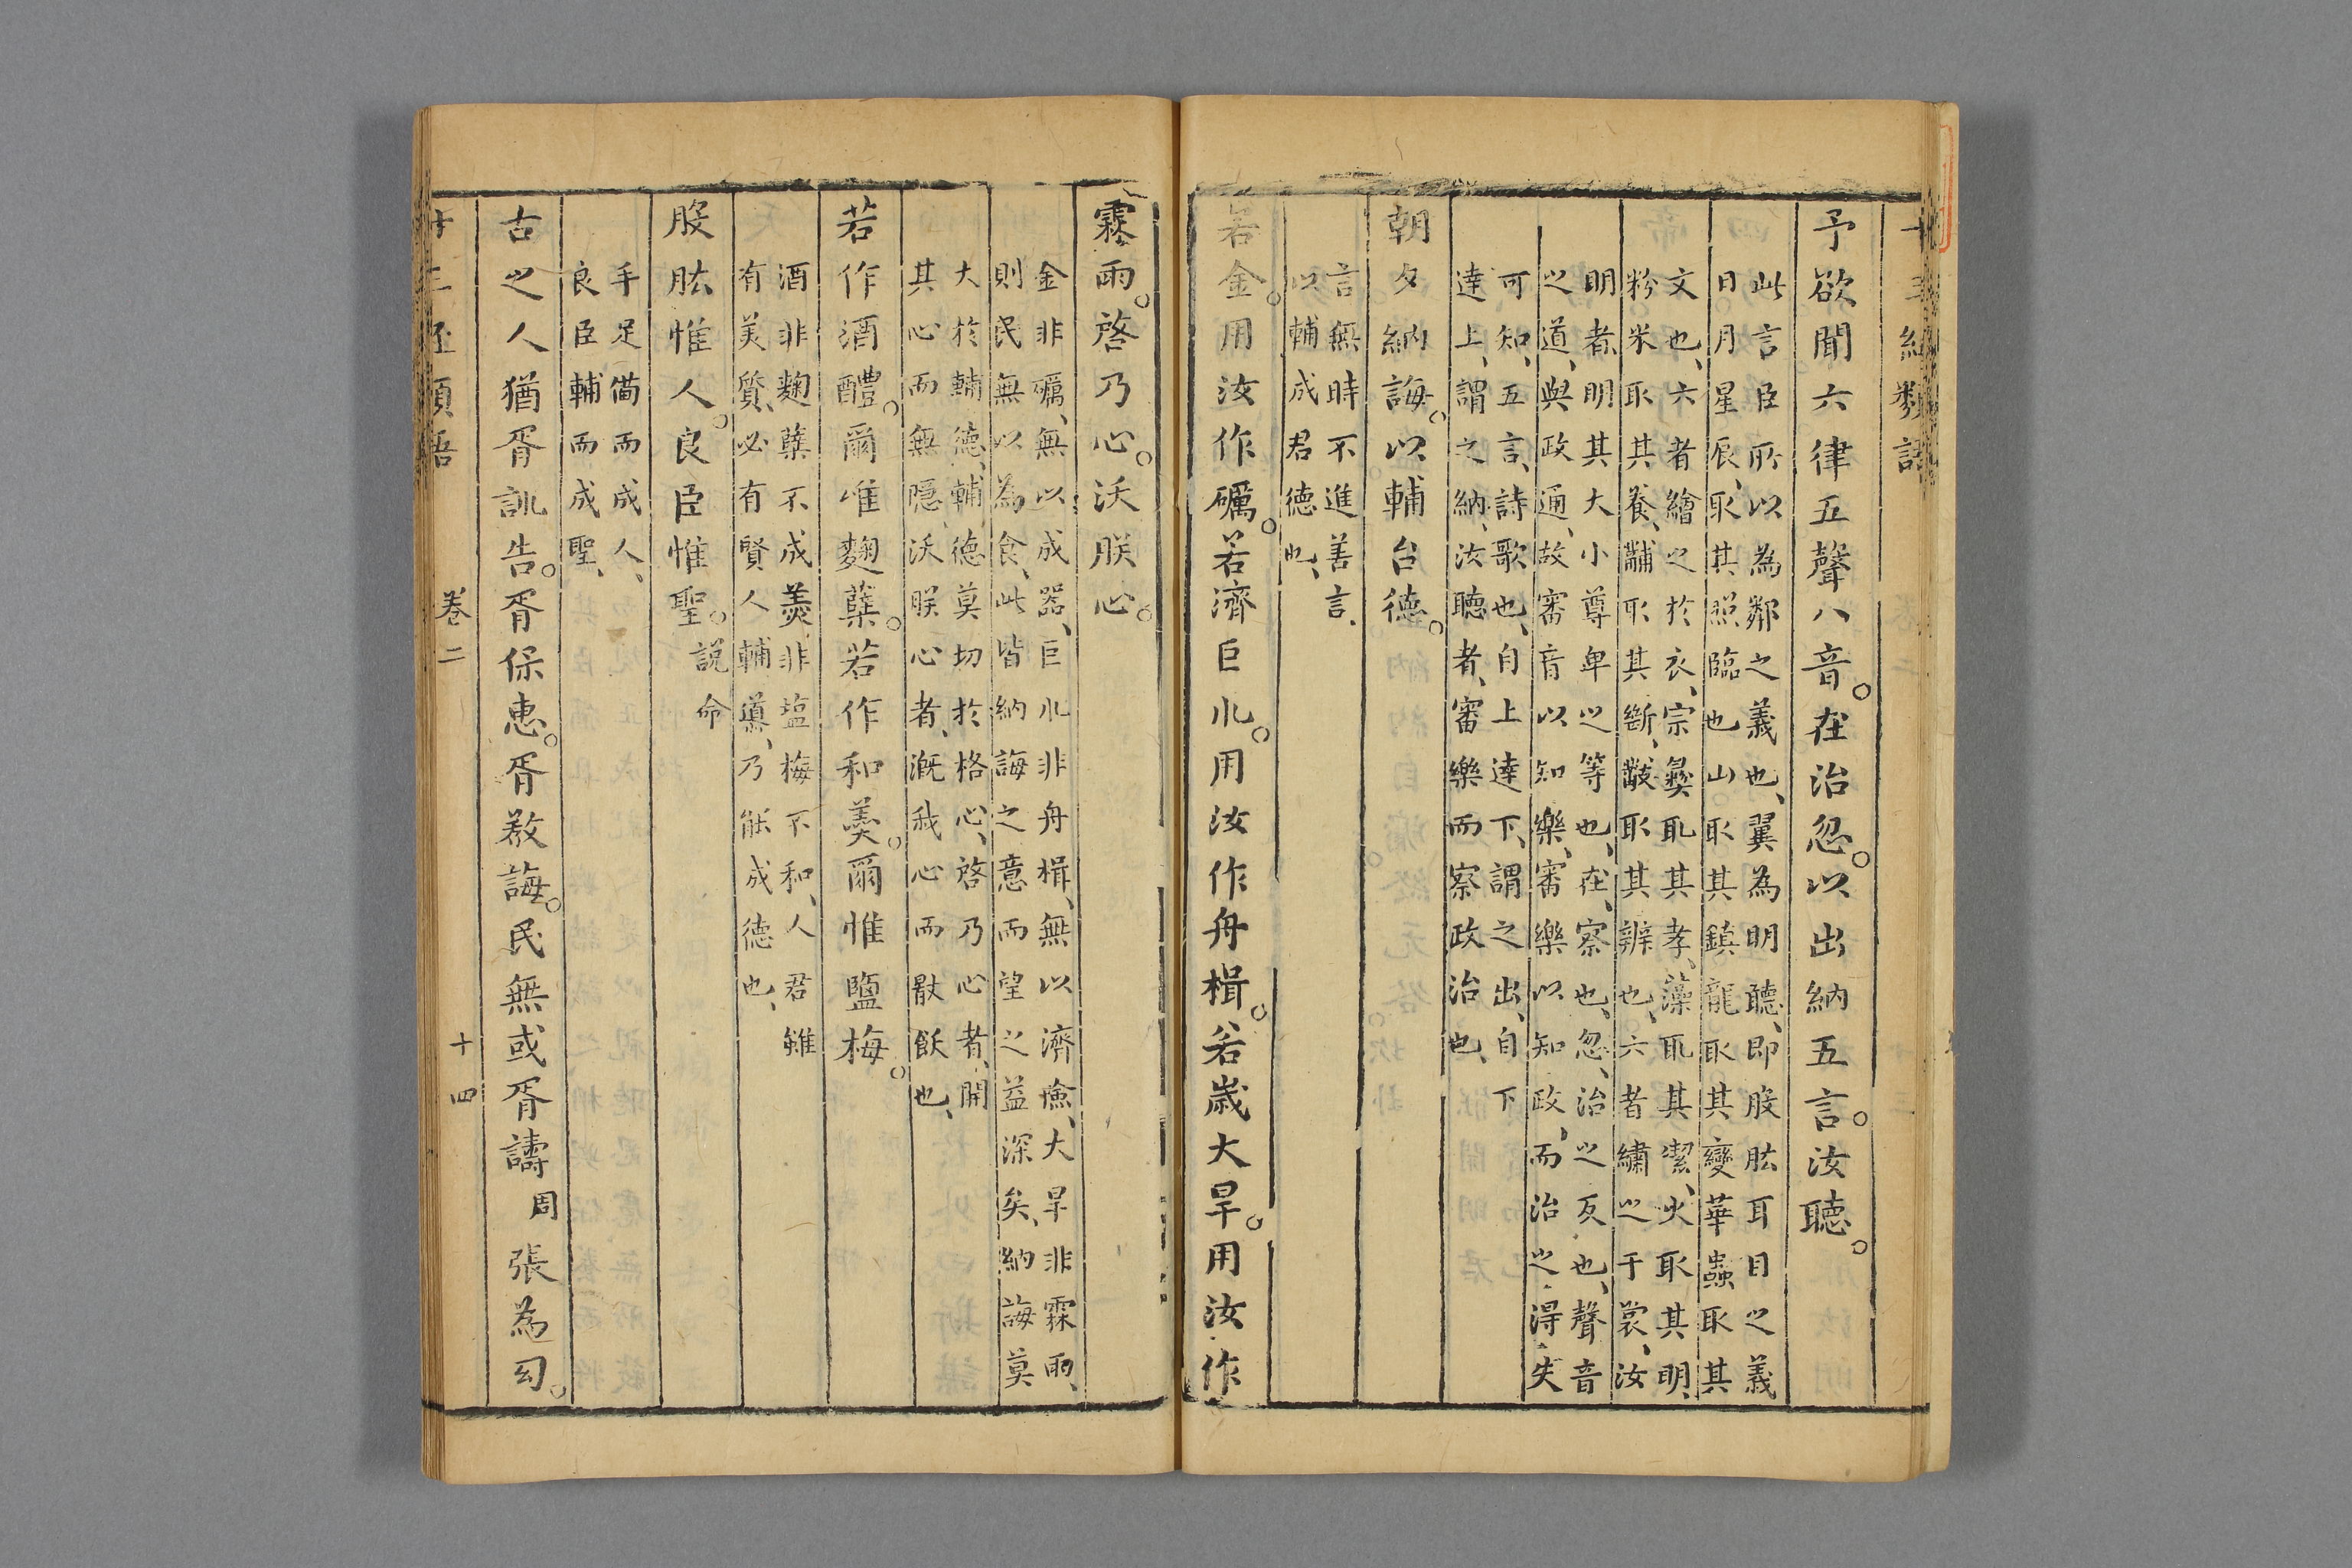 予欲聞六律五聲八音。在治忽。以出納五言。汝聽。
此言臣所以為鄰之義也、翼為明聽、即股肱耳目之義
日月星辰、取其照臨也山取其鎮龍取其變華蟲取其
文也、六者繪之於衣、宗彝取其孝、藻取其潔、火取其明、
粉米取其養、黼取其斷、黻取其辨也、六者繡之于裳、汝
明者明其大小尊卑之等也、在、察也、忽、治之反也、聲音
之道、與政通、故審音以知樂、審樂以知政、而治之得失
可知、五言、詩歌也、自上達下、謂之出、自下
達上、謂之納、汝聽者、審樂而察政治也、
朝夕納誨。以輔台德。
言無時不進善言、
以輔成君德也、
若金。用汝作礪。若濟巨川。用汝作舟楫。若歲大旱。用汝作
霖雨。啓乃心。沃朕心。
金非礪、無以成器、巨川非舟楫、無以濟險、大旱非霖雨、
則民無以為食、此皆納誨之意而望之益深矣、納誨莫
大於輔德、輔德莫切於格心、啓乃心者、開
其心而無隱、沃朕心者、溉我心而厭飫也、
若作酒醴。爾惟麴糵。若作和羹。爾惟鹽梅。
酒非麴糵不成羹非塩梅不和、人君雖
有美質、必有賢人輔導、乃能成德也、
股肱惟人。良臣惟聖。說命
手足俻而成人、
良臣輔而成聖、
古之人猶胥訓告。胥保惠。胥教誨。民無或胥譸周張為幻。
卷二 十四